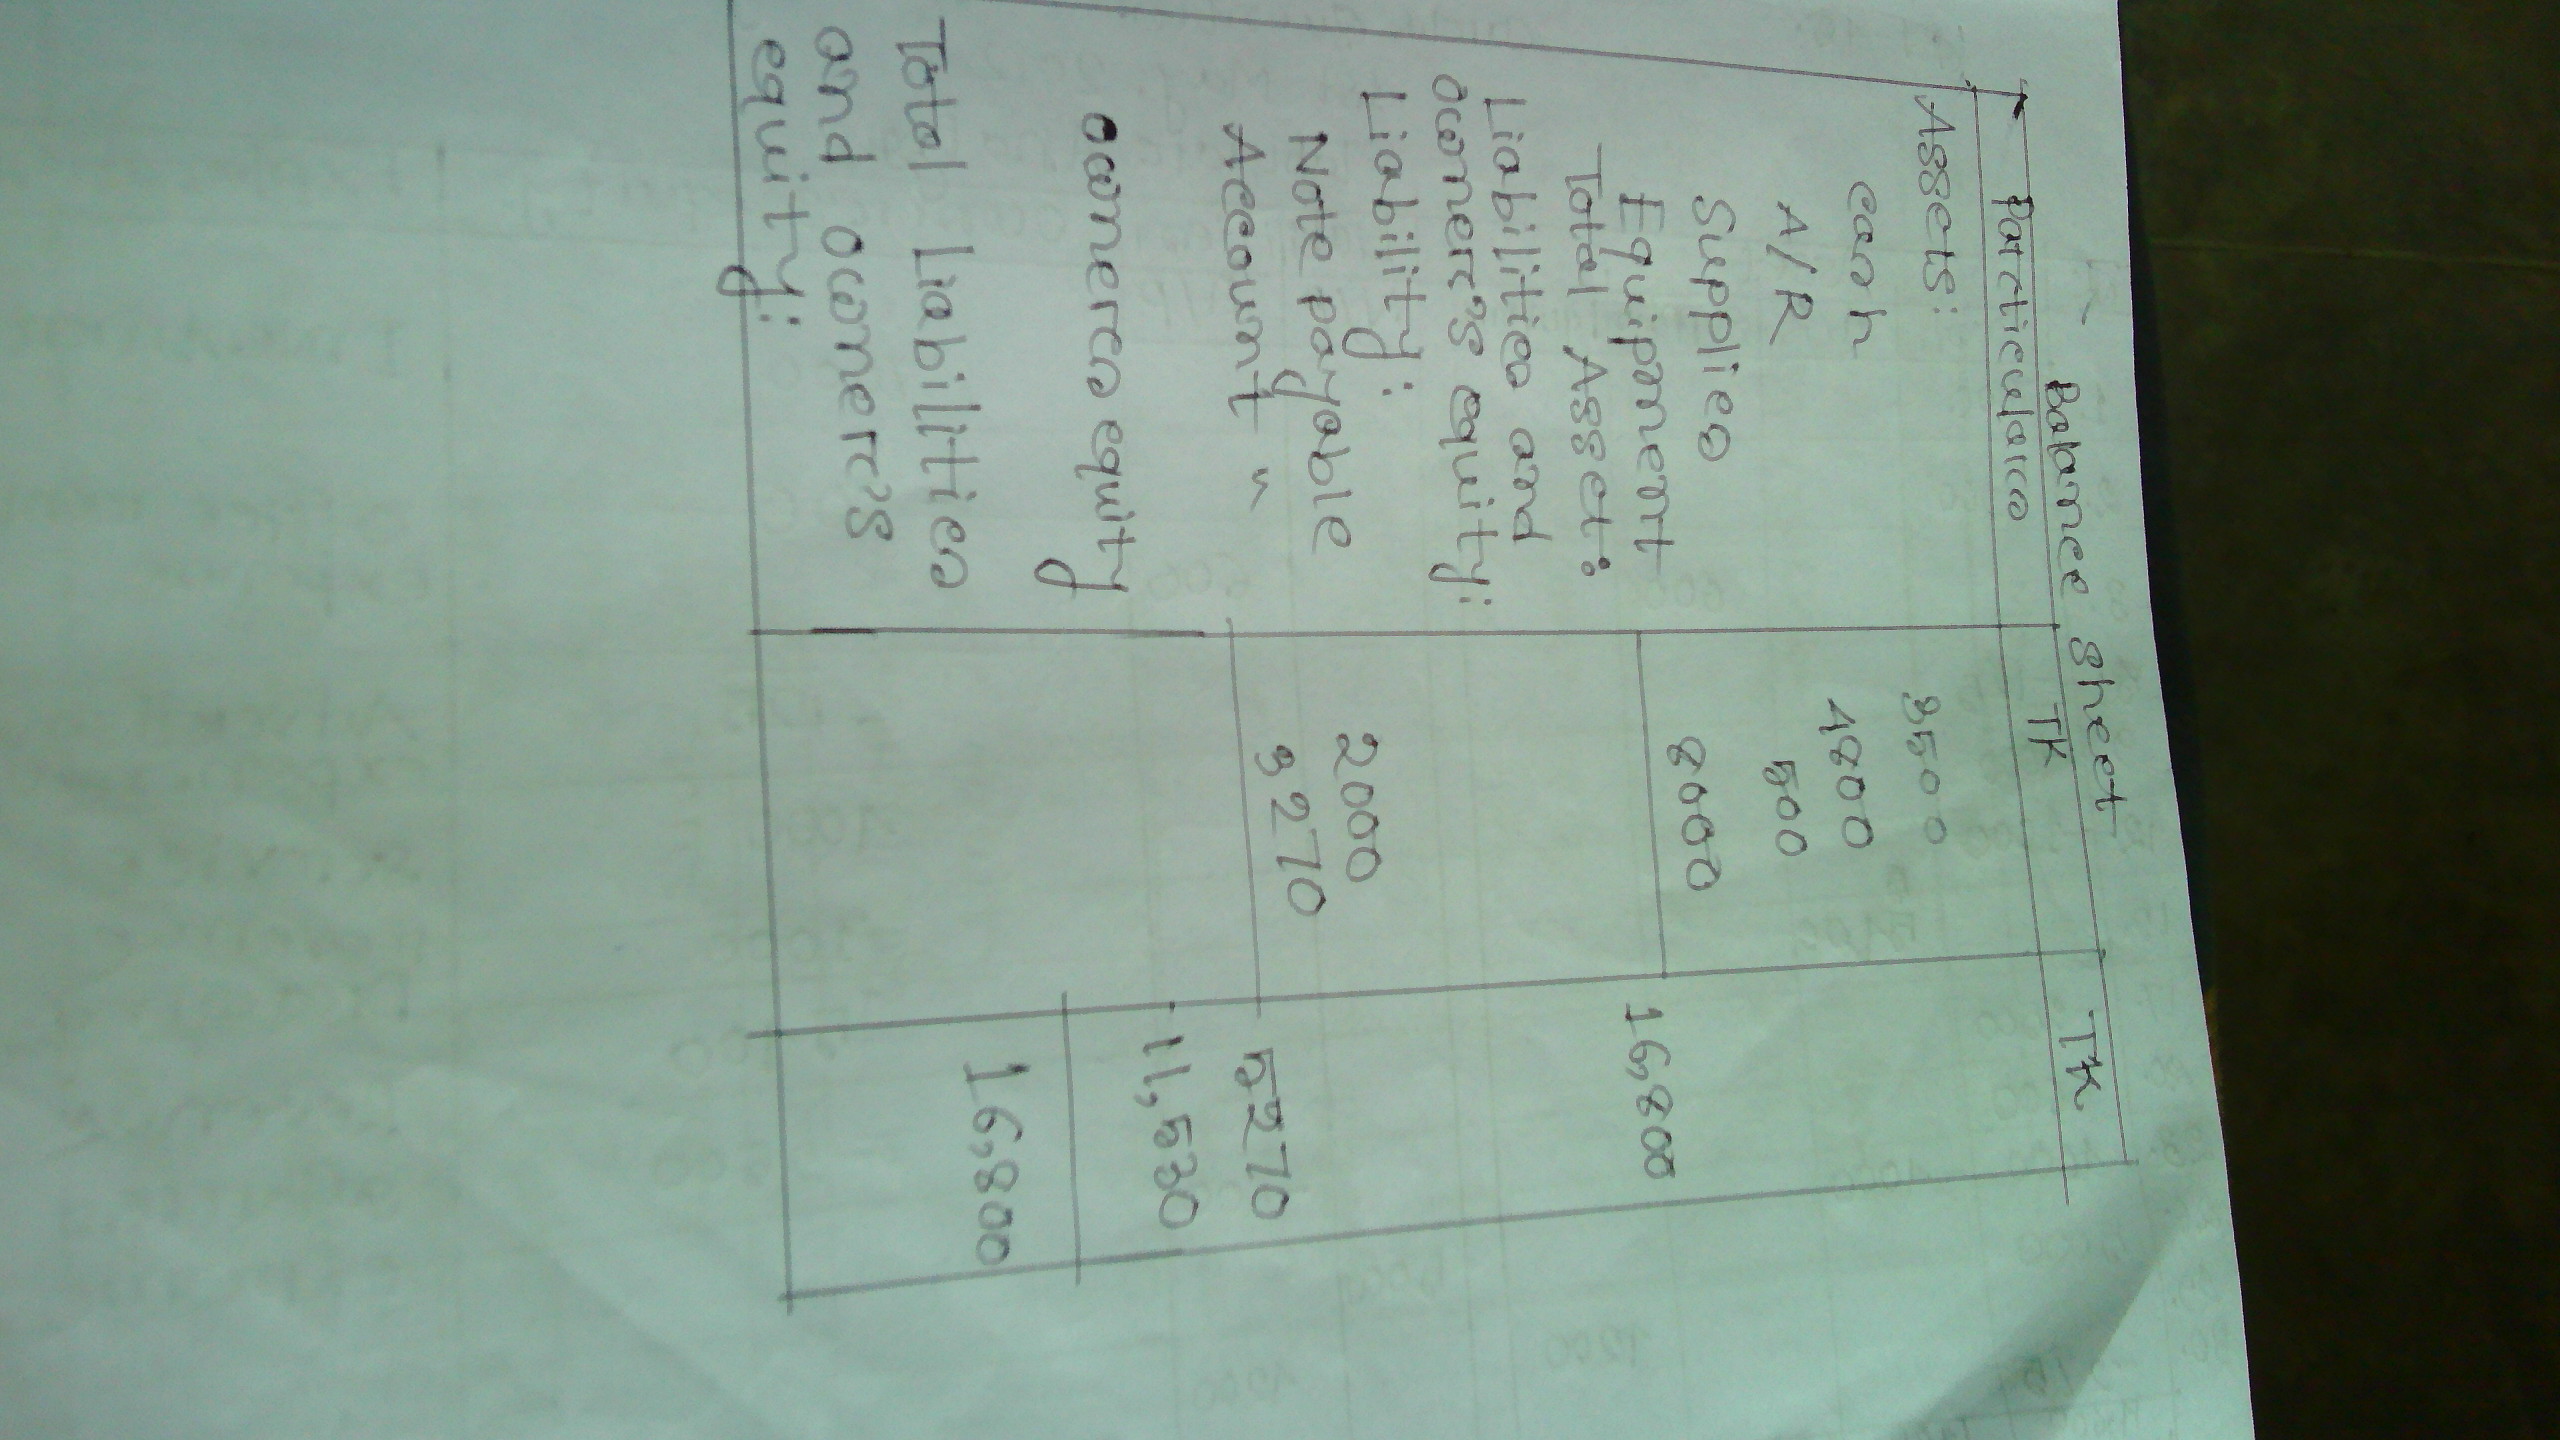 Balance sheet
Particulars TK TK
Assets:
cash 3500
A/R 4800
Supplies 500
Equipment 8000
Total Asset: 16,800
Liabilities and
owner's equity:
Liability:
Note payable 2000
Account " 3270 5270
owners equity 11,530
Total Liabilities 16,800
and owner's
equity: